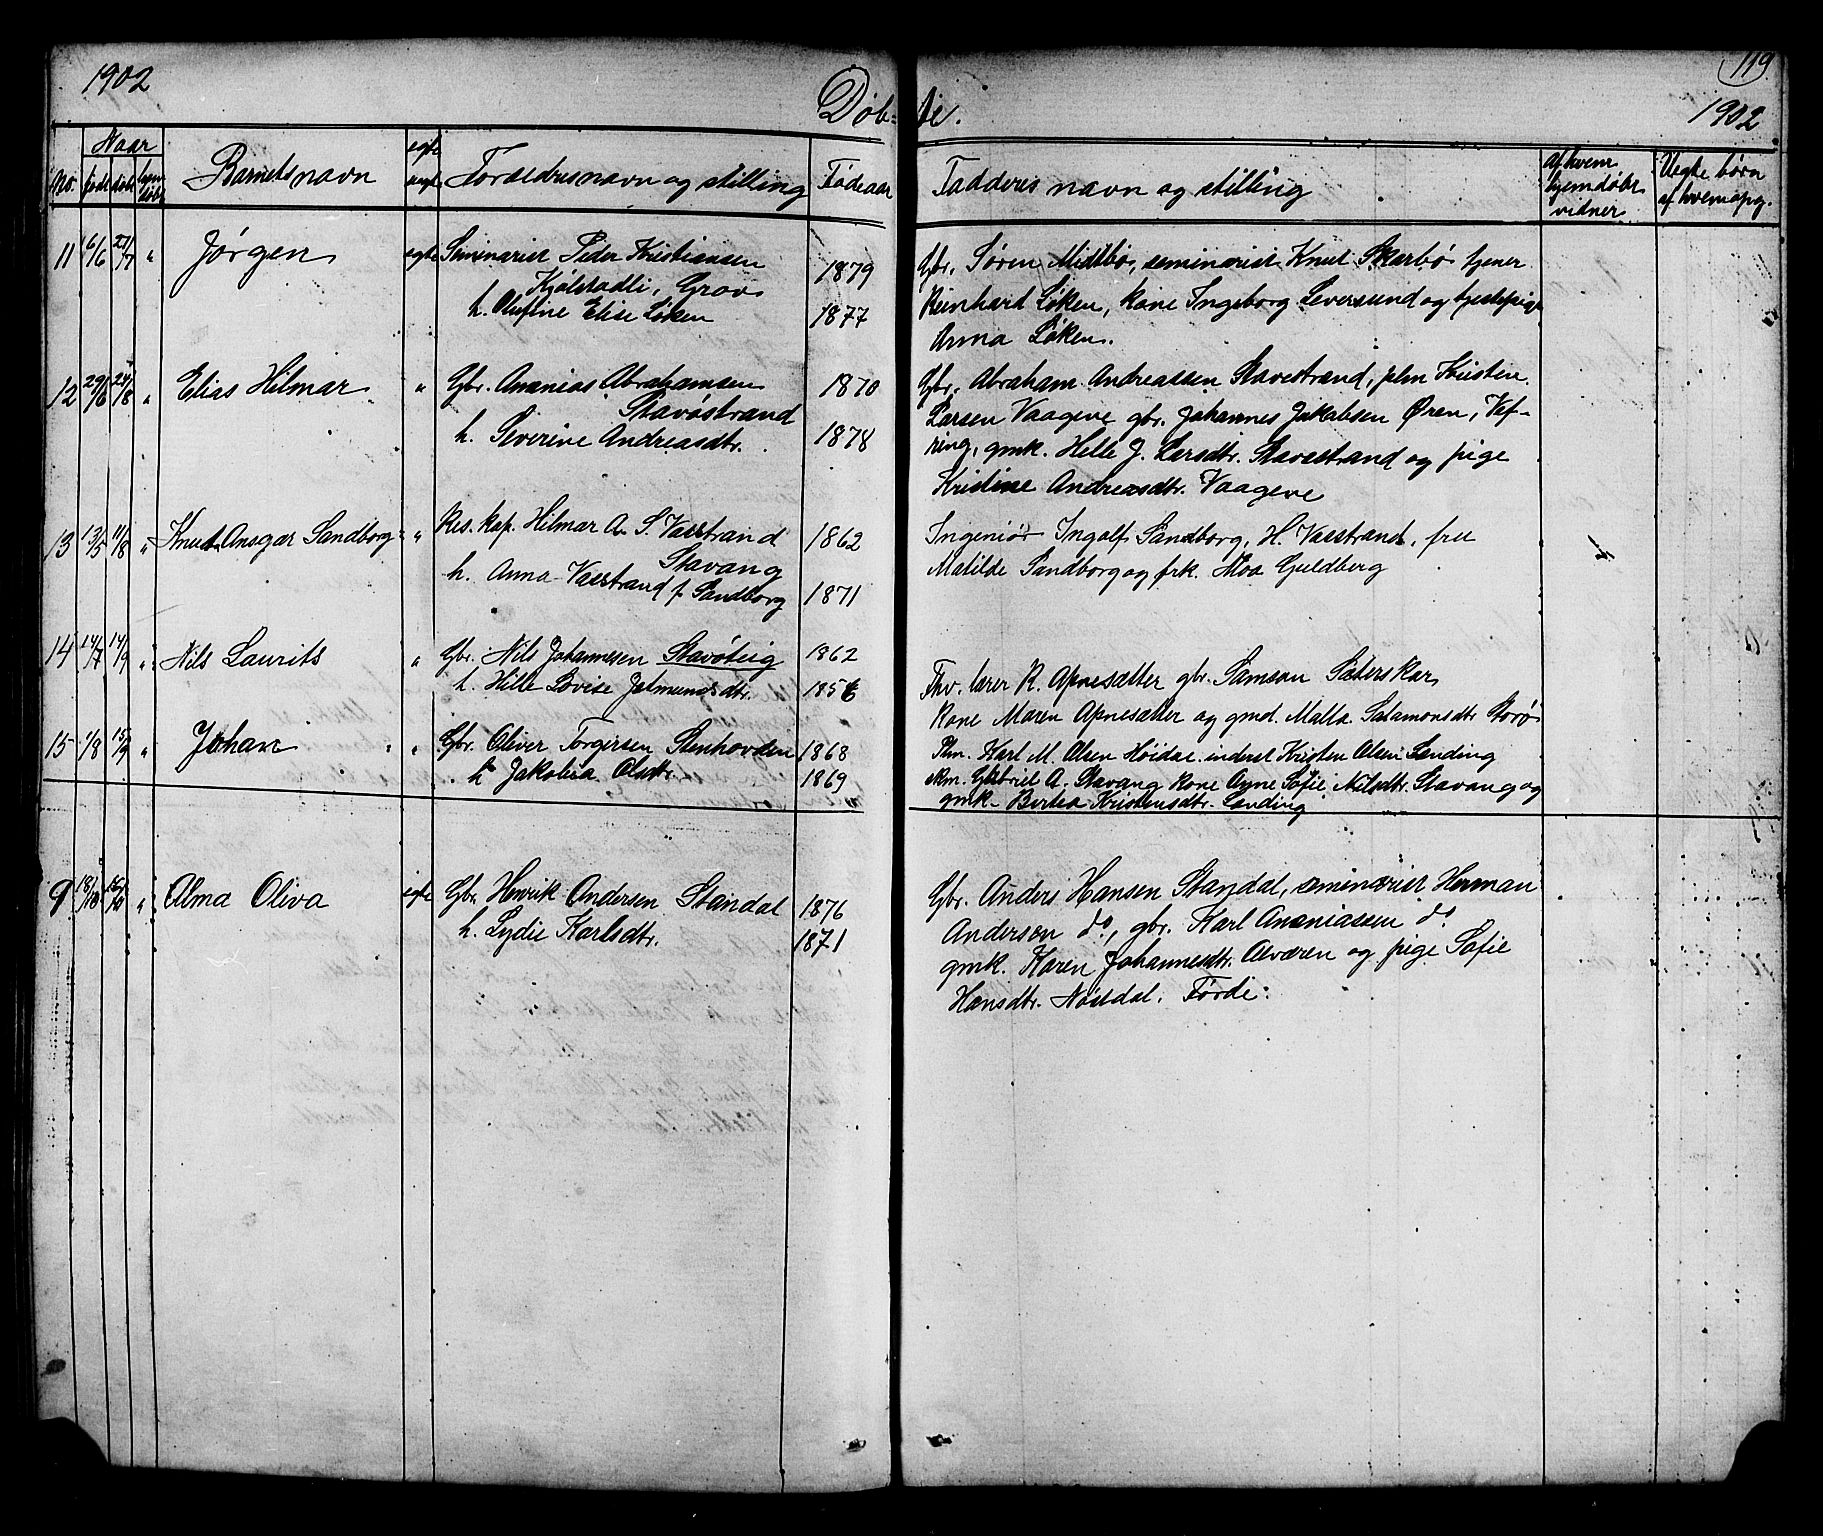 1902
Døb=
te.
119.
1902
Naar
No. født døbt hjem døbt
Barnets navn
egte uegte
Forældres navn og stilling
Fødeaar
Fadderes navn og stilling
af hvem hjemdøbt vidner
Uegte børn af hvem opg.
11 16/6 27/7 " Jørgen egte Seminarist Peder Kristiansen
Kjølstadli, Grov 1879
h. Olufine Elise Løken 1877
Gbr. Søren Midtbø, seminarist Knut Skarbø tjener
Reinhard Løken, kone Ingeborg Leversund og tjenstepige
Anna Løken.
12 29/6 24/8 " Elias Hilmar " Gbr. Ananias Abrahamsen 1870
Stavøstrand
h. Severine Andreasdtr. 1878
Gbr. Abraham Andreassen Stavestrand, plm Kristen
Larsen Vaagene gbr. Johannes Jakobsen Øren, Vef-
ring, gmk. Helle J. Larsdtr. Stavestrand og pige
Kristine Andreasdtr. Vaagene
13 13/5 11/8 " Knut Ansgar Sandborg " Res. kap. Hilmar A. S. Vasstrand 1862
Stavang
h. Anna Vasstrand f. Sandborg 1871
Ingeniør Ingolf Sandborg, H. Vasstrand, fru
Matilde Sandborg og frk. Moa Guldberg
14 14/7 14/9 " Nils Laurits " Gbr. Nils Johannesen Stavøteig 1862
h. Hille Lovise Jetmundsdtr. 1856
Fhv. lærer R. Apnesætter gbr. Samson Sæterskar
Kone Maren Apnesæter og gmd. Malta Salamonsdtr Storø
15 1/8 15/9 " Johan " Gbr. Oliver Torgersen Stenhovden 1868
h. Jakobia Olsdtr. 1869
Plm. Karl M. Olsen Høidal inderst Kristen Olsen Sanding
skm. Gabriel A. Stavang kone Anne Sofie Nilsdtr. Stavang og
gmk. Bertea Kristensdtr. Sanding
9 18/10 26/12 " Alma Oliva egte Gbr. Henrik Andersen Standal 1876
h. Lydie Karlsdtr. 1871
Gbr. Anders Hansen Standal, seminarist Herman
Anderson do, gbr. Karl Ananiassen do
gmk. Karen Johannesdtr. Alværen og pige Sofie
Hansdtr. Nøstdal. Førde.